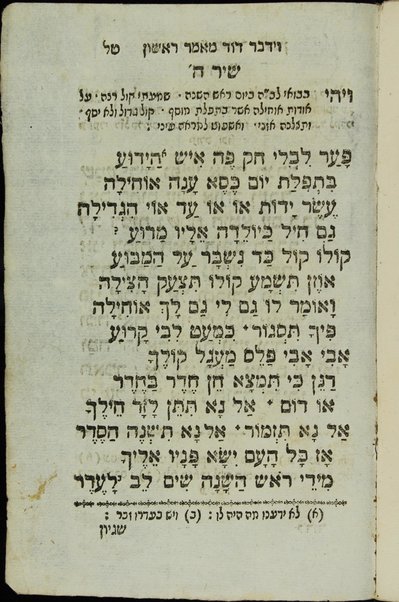 וידבר דוד מאמר ראשון טל
שיר ה׳
ויהי בבואי לב״ה ביום ראש השנה ׳ שמעתי קול רנה ׳ על
אודות אוחילה אשר בתפלת מוסף ׳ קול גדול ולא יסף ׳
ותעלה אזני ׳ ואשפוט למראה עיני :
פָּעַר לִבְלִי חֹק פֶּה אִישׁ הַיָּדוּעַ
בִּתְפִלַּת יוֹם כֶּסֶא עָנָה אוֹחִילָה
עֶשֶׂר יָדוֹת אוֹ אוֹ עַד אוֹי הִגְדִּילָה
גַּם חִיל כַּיּוֹלֵדָה אֵלָיו מַרְוּעַ ?
קוֹלוֹ קוֹל כַּד נִשְׁבָּר עַל הַמַּבּוּעַ
אוֹזֶן תִּשְׁמַע קוֹלוֹ תִּצְעַק הֲצִילָה
וָאוֹמַר לוֹ גַּם לִי גַּם לָךְ אוֹחִילָה
פִּיךָ תִּסְגּוֹר ׳ כִּמְעַט לִבִּי קָרוּעַ
אָבִי אָבִי פַּלֵּס מַעְגַּל קוֹלֶךָ
רַנֵּן כִּי תִמְצָא חֵן חֶדֶר בְּחֶדֶר
אוֹ דוֹם ׳ אַל נָא תִּתֵּן לָזָר חֵילֶךָ
אַל נָא תִּזְמוֹר ׳ אַל נָא תִּשְׁנֶה הַסֵּדֶר
אָז כָּל הָעָם יִשָּׂא פָּנָיו אֵלֶיךָ
מִידֵי רֹאשׁ הַשָּׁנָה שִׂים לֵב לָעֵדֶר
(א) לא ידענו מה היה לו : (ב) ויש בעדרו זכר :
שגיון